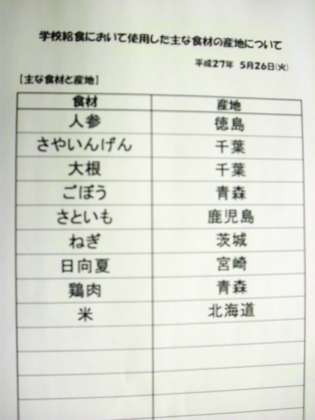 学校給食において使用した主な食材の産地について
平成27年 5月26日(火)
【主な食材と産地】
食材 産地
人参 徳島
さやいんげん 千葉
大根 千葉
ごぼう 青森
さといも 鹿児島
ねぎ 茨城
日向夏 宮崎
鶏肉 青森
米 北海道